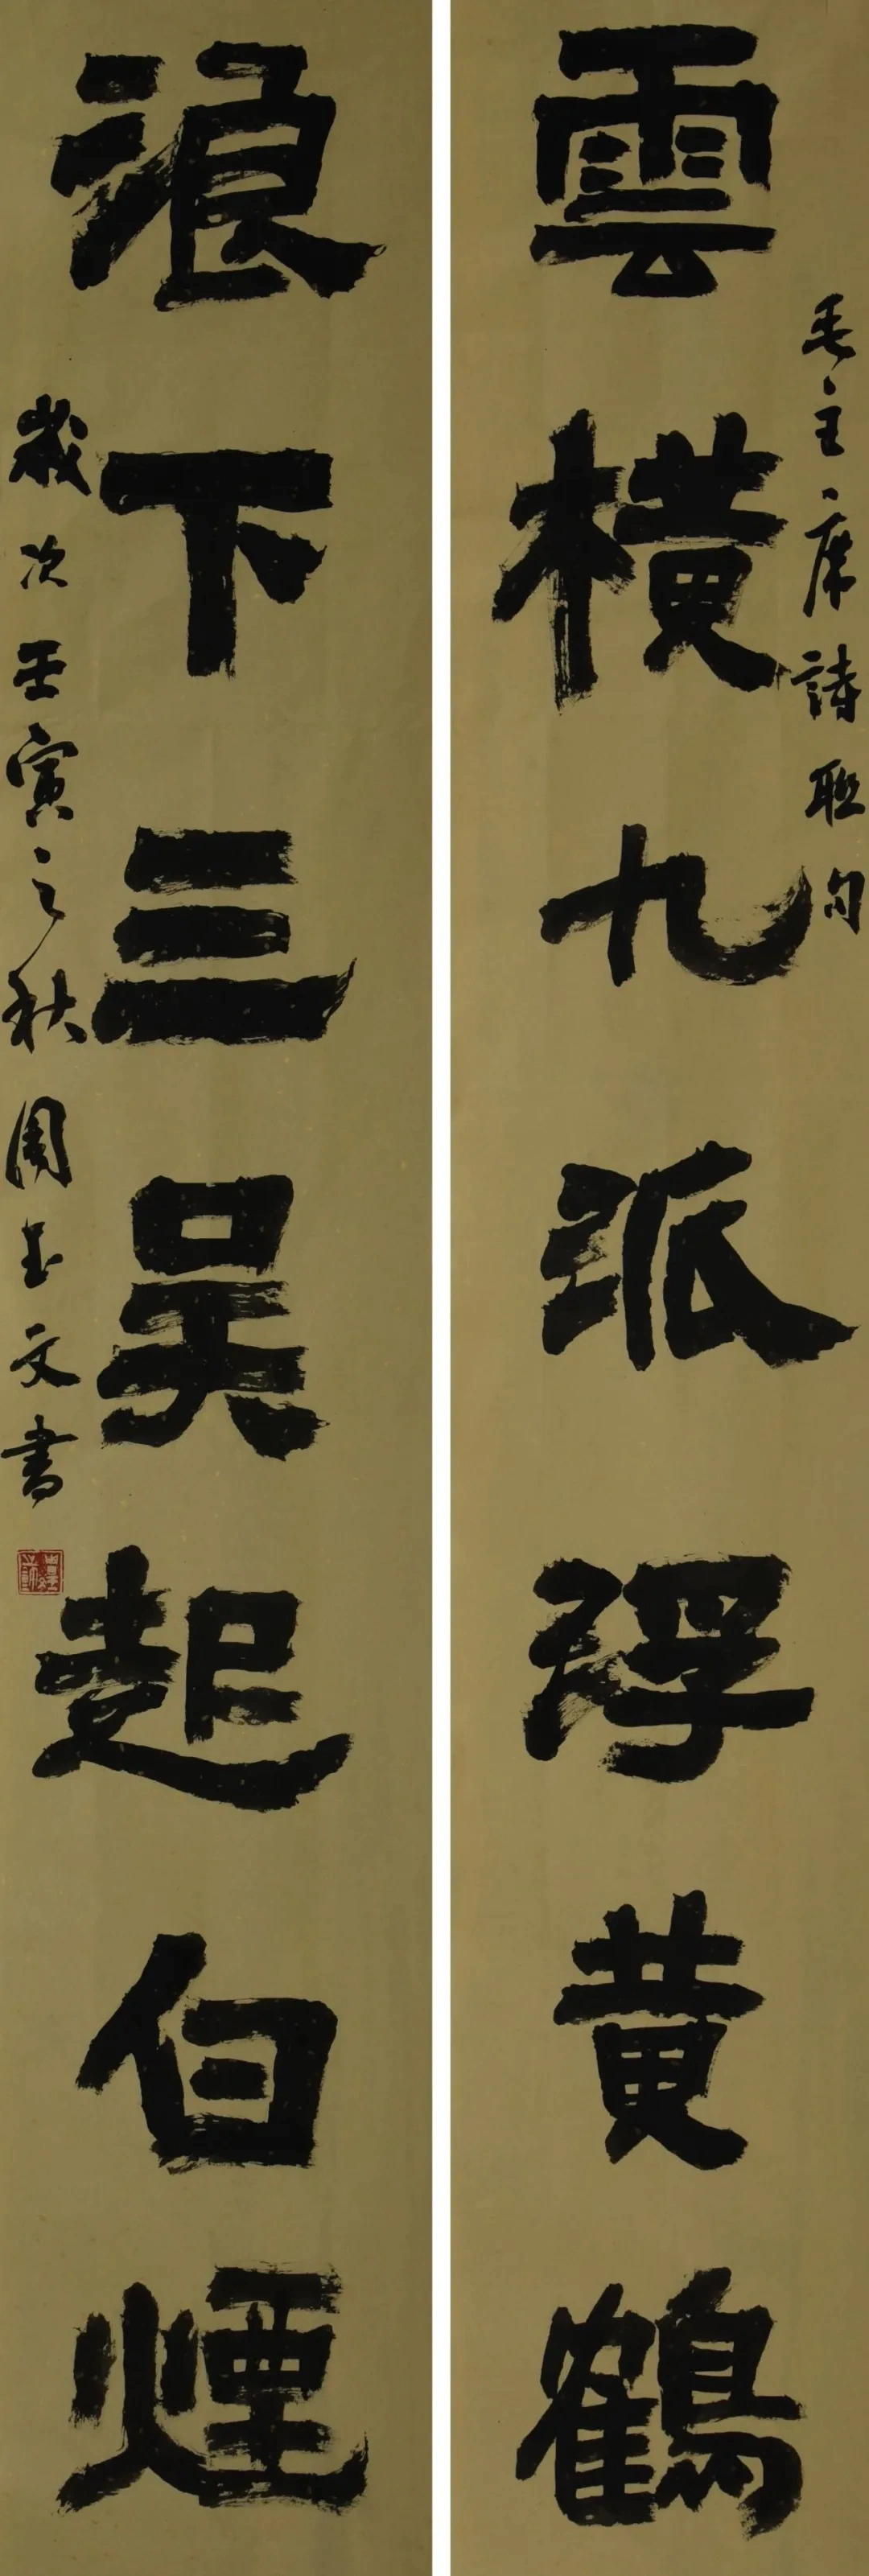 雲橫九派浮黄鶴
毛主席詩聯句
浪下三吴起白煙
歲次壬寅之秋周玉文書